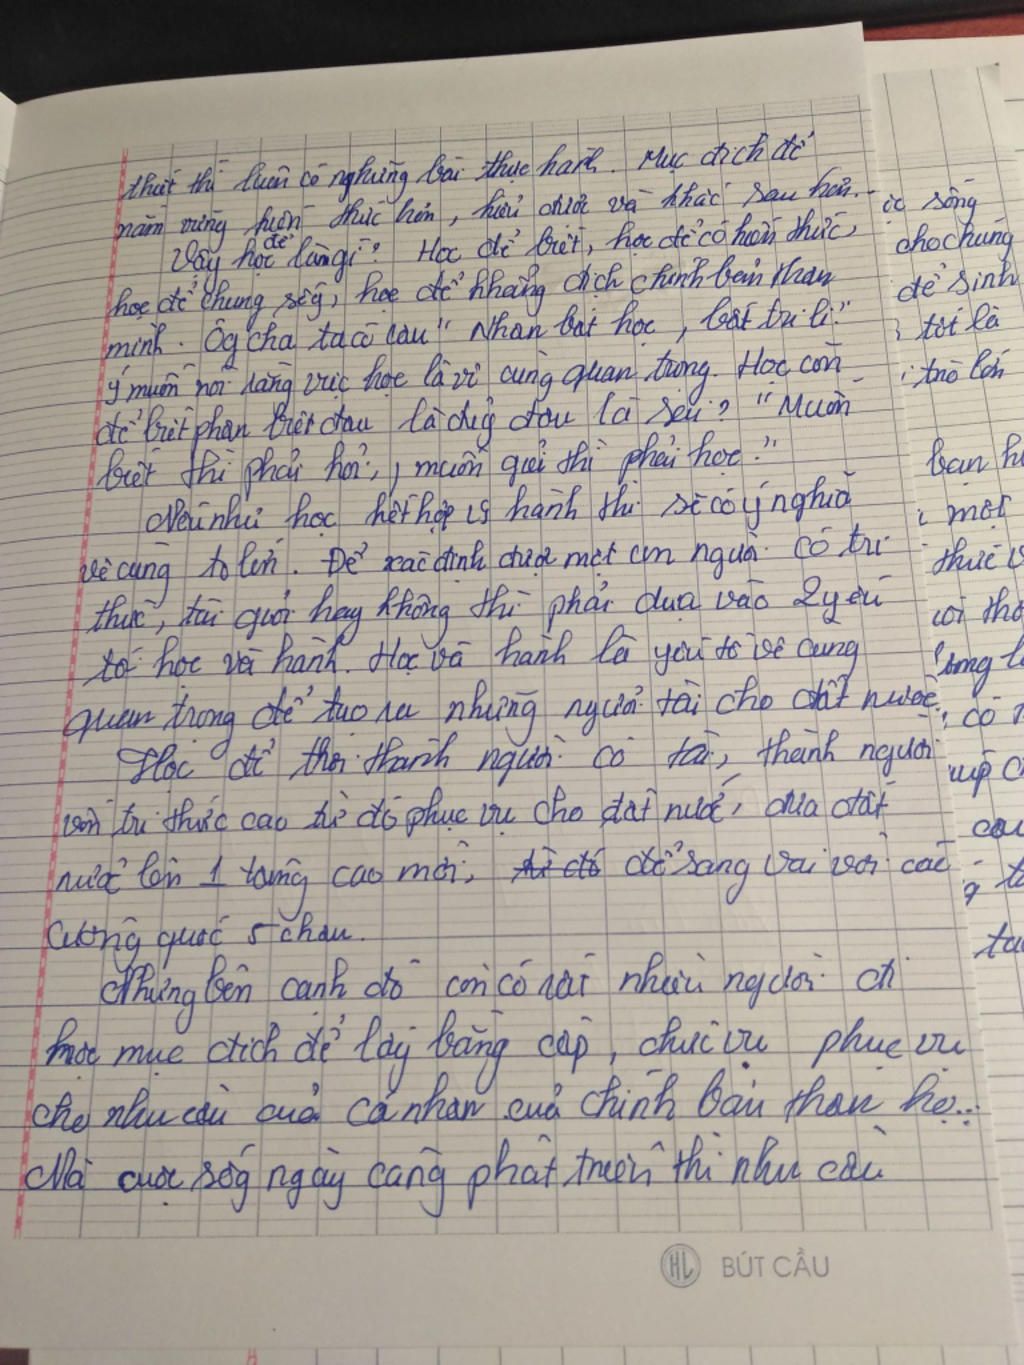 thuết thì luôn có nghững bài thực hành. Mục đích để
nắm vững kiến thức hơn, hiểu được và khắc sau hơn.
Vậy học để làm gì? Học để biết, học để có kiến thức,
học để chung sốg, học để khẳng địch chính bản than
mình. Ôg cha ta có câu "Nhan bất học, bất tri lí."
ý muốn nói rằng việc học là vì cùng quan trọng. Học còn
để biết phân biệt đâu là đúg đâu là sai? "Muốn
biết thì phải hỏi, muốn giỏi thì phải học."
Nếu như học kết hợp vs hành thì sẽ có ý nghĩa
vô cùng to lớn. Để xác định được một cn người có tri
thức, tài giỏi hay không thì phải dựa vào 2 yếu
tố học và hành. Học và hành là yếu tố vô cùng
quan trọng để tạo ra những người tài cho đất nước.
Học để thời thành người có tài, thành người
vốn tri thức cao từ đó phục vụ cho đất nước, đưa đất
nước lên 1 tầng cao mới, từ đó để sang vai với các
cường quốc 5 châu.
Nhưng bên cạnh đó còn có rất nhiều người đi
học mục đích để lấy bằng cấp, chức vụ phục vụ
cho nhu cầu cuả cá nhan cuả chính bản than họ...
Mà cuộc sốg ngày càng phát triển thì nhu cầu
sống
cho chúng
để sinh
tôi là
trò lớn
bạn
một
thức
có
cou
HL BÚT CẦU